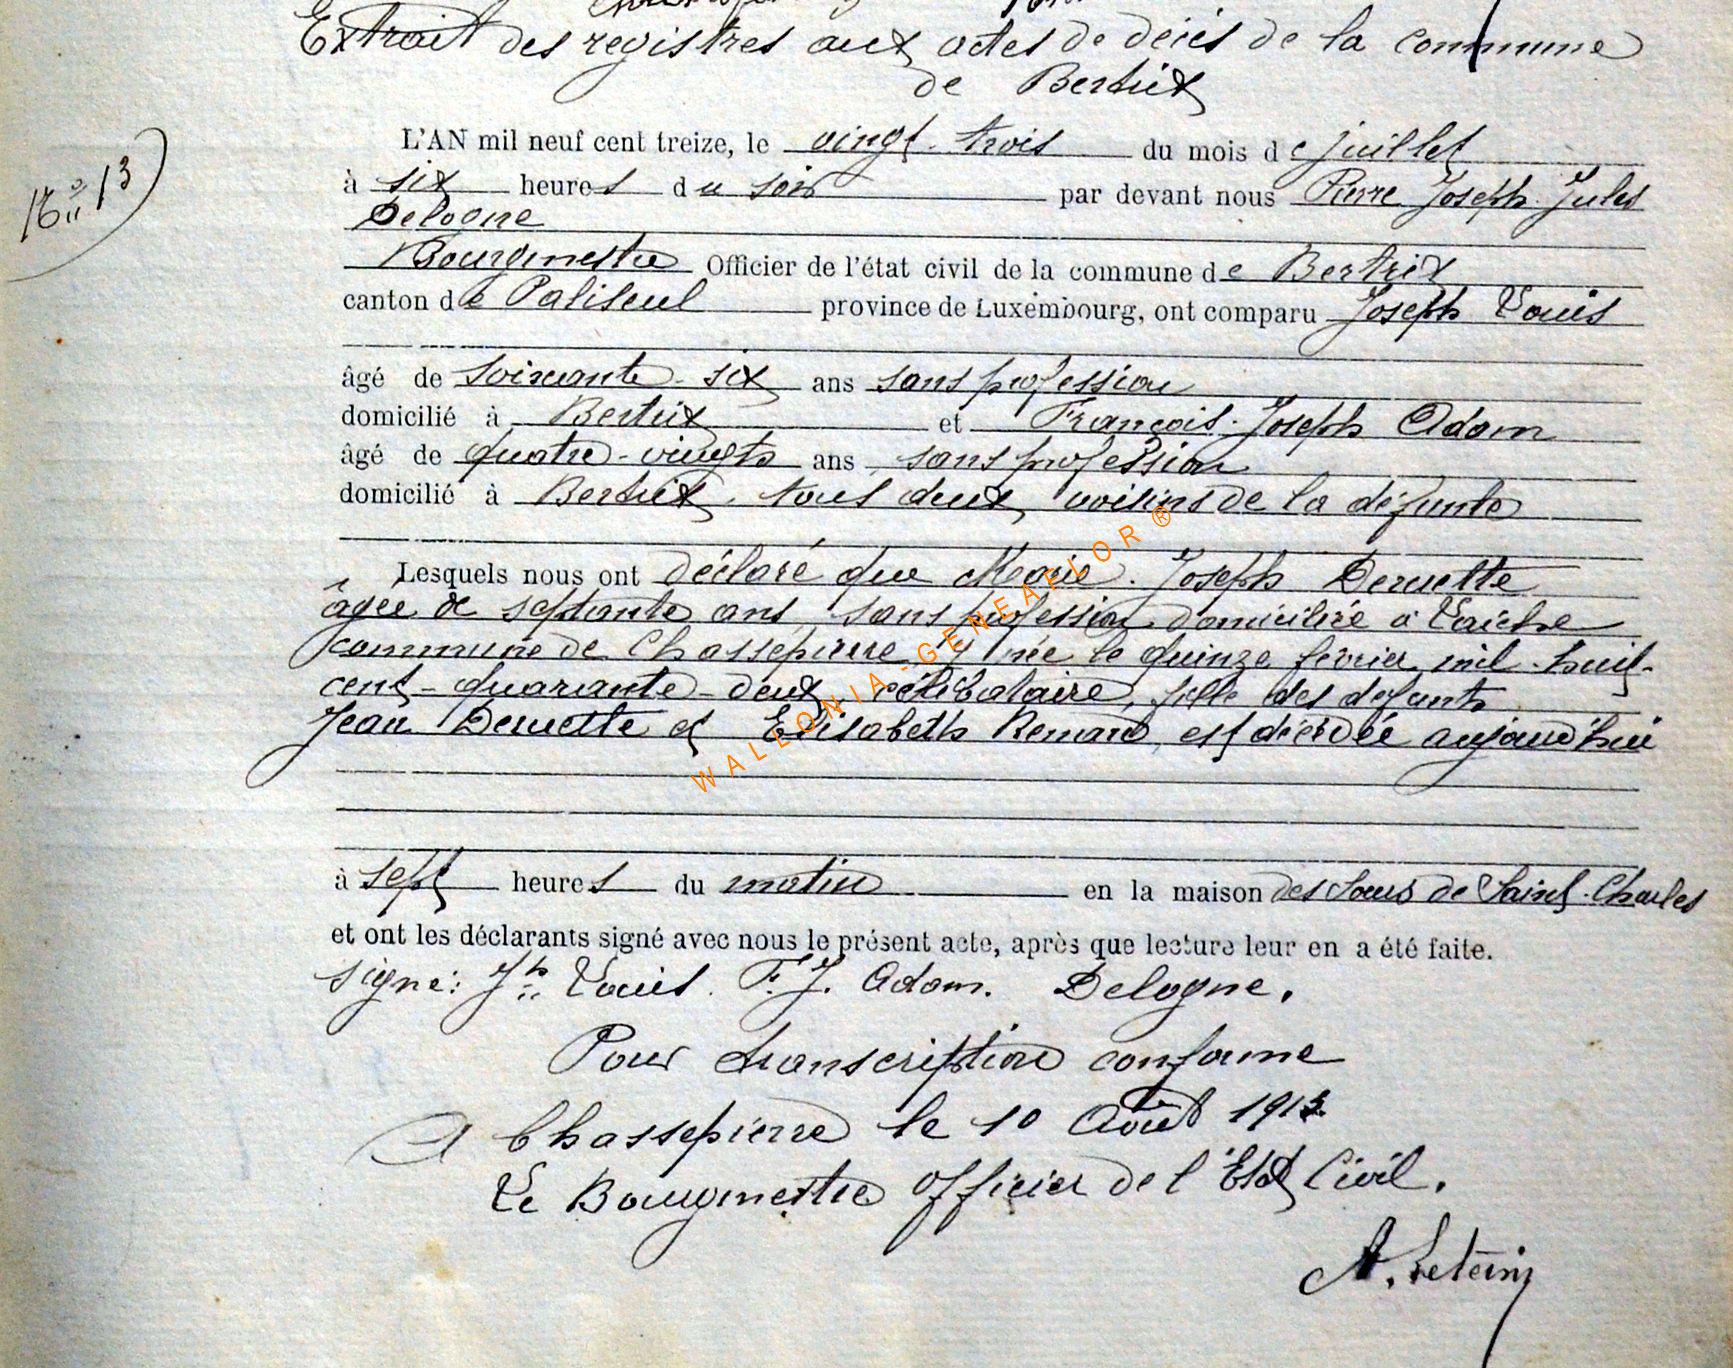 Extrait des registres aux actes de décès de la commune
de Bertrix
L'AN mil neuf cent treize, le vingt-trois du mois de juillet
à six heures du soir par devant nous Pierre Joseph Jules
Delogne
Bourgmestre Officier de l'état civil de la commune de Bertrix
canton de Paliseul province de Luxembourg, ont comparu Joseph Louis
âgé de soixante-six ans sans profession
domicilié à Bertrix et François-Joseph Adam
âgé de quatre-vingts ans, sans profession
domicilié à Bertrix, tous deux, voisins de la défunte
Lesquels nous ont déclaré que Marie-Joseph Deruette
âgée de septante ans, sans profession domiciliée à Laiche
commune de Chassepierre, y née le quinze février mil-huit-
cent-quarante-deux, célibataire, fille des défunts
Jean Deruette et Elisabeth Renard, est décédée aujourd'hui
à sept heures du matin en la maison des Sœurs de Saint-Charles
et ont les déclarants signé avec nous le présent acte, après que lecture leur en a été faite.
Signé: Jh Louis. F. J. Adam. Delogne.
Pour transcription conforme
A Chassepierre le 10 Août 1913.
Le Bourgmestre officier de l'Etat Civil.
WALLONIA-GENEAFLOR ®